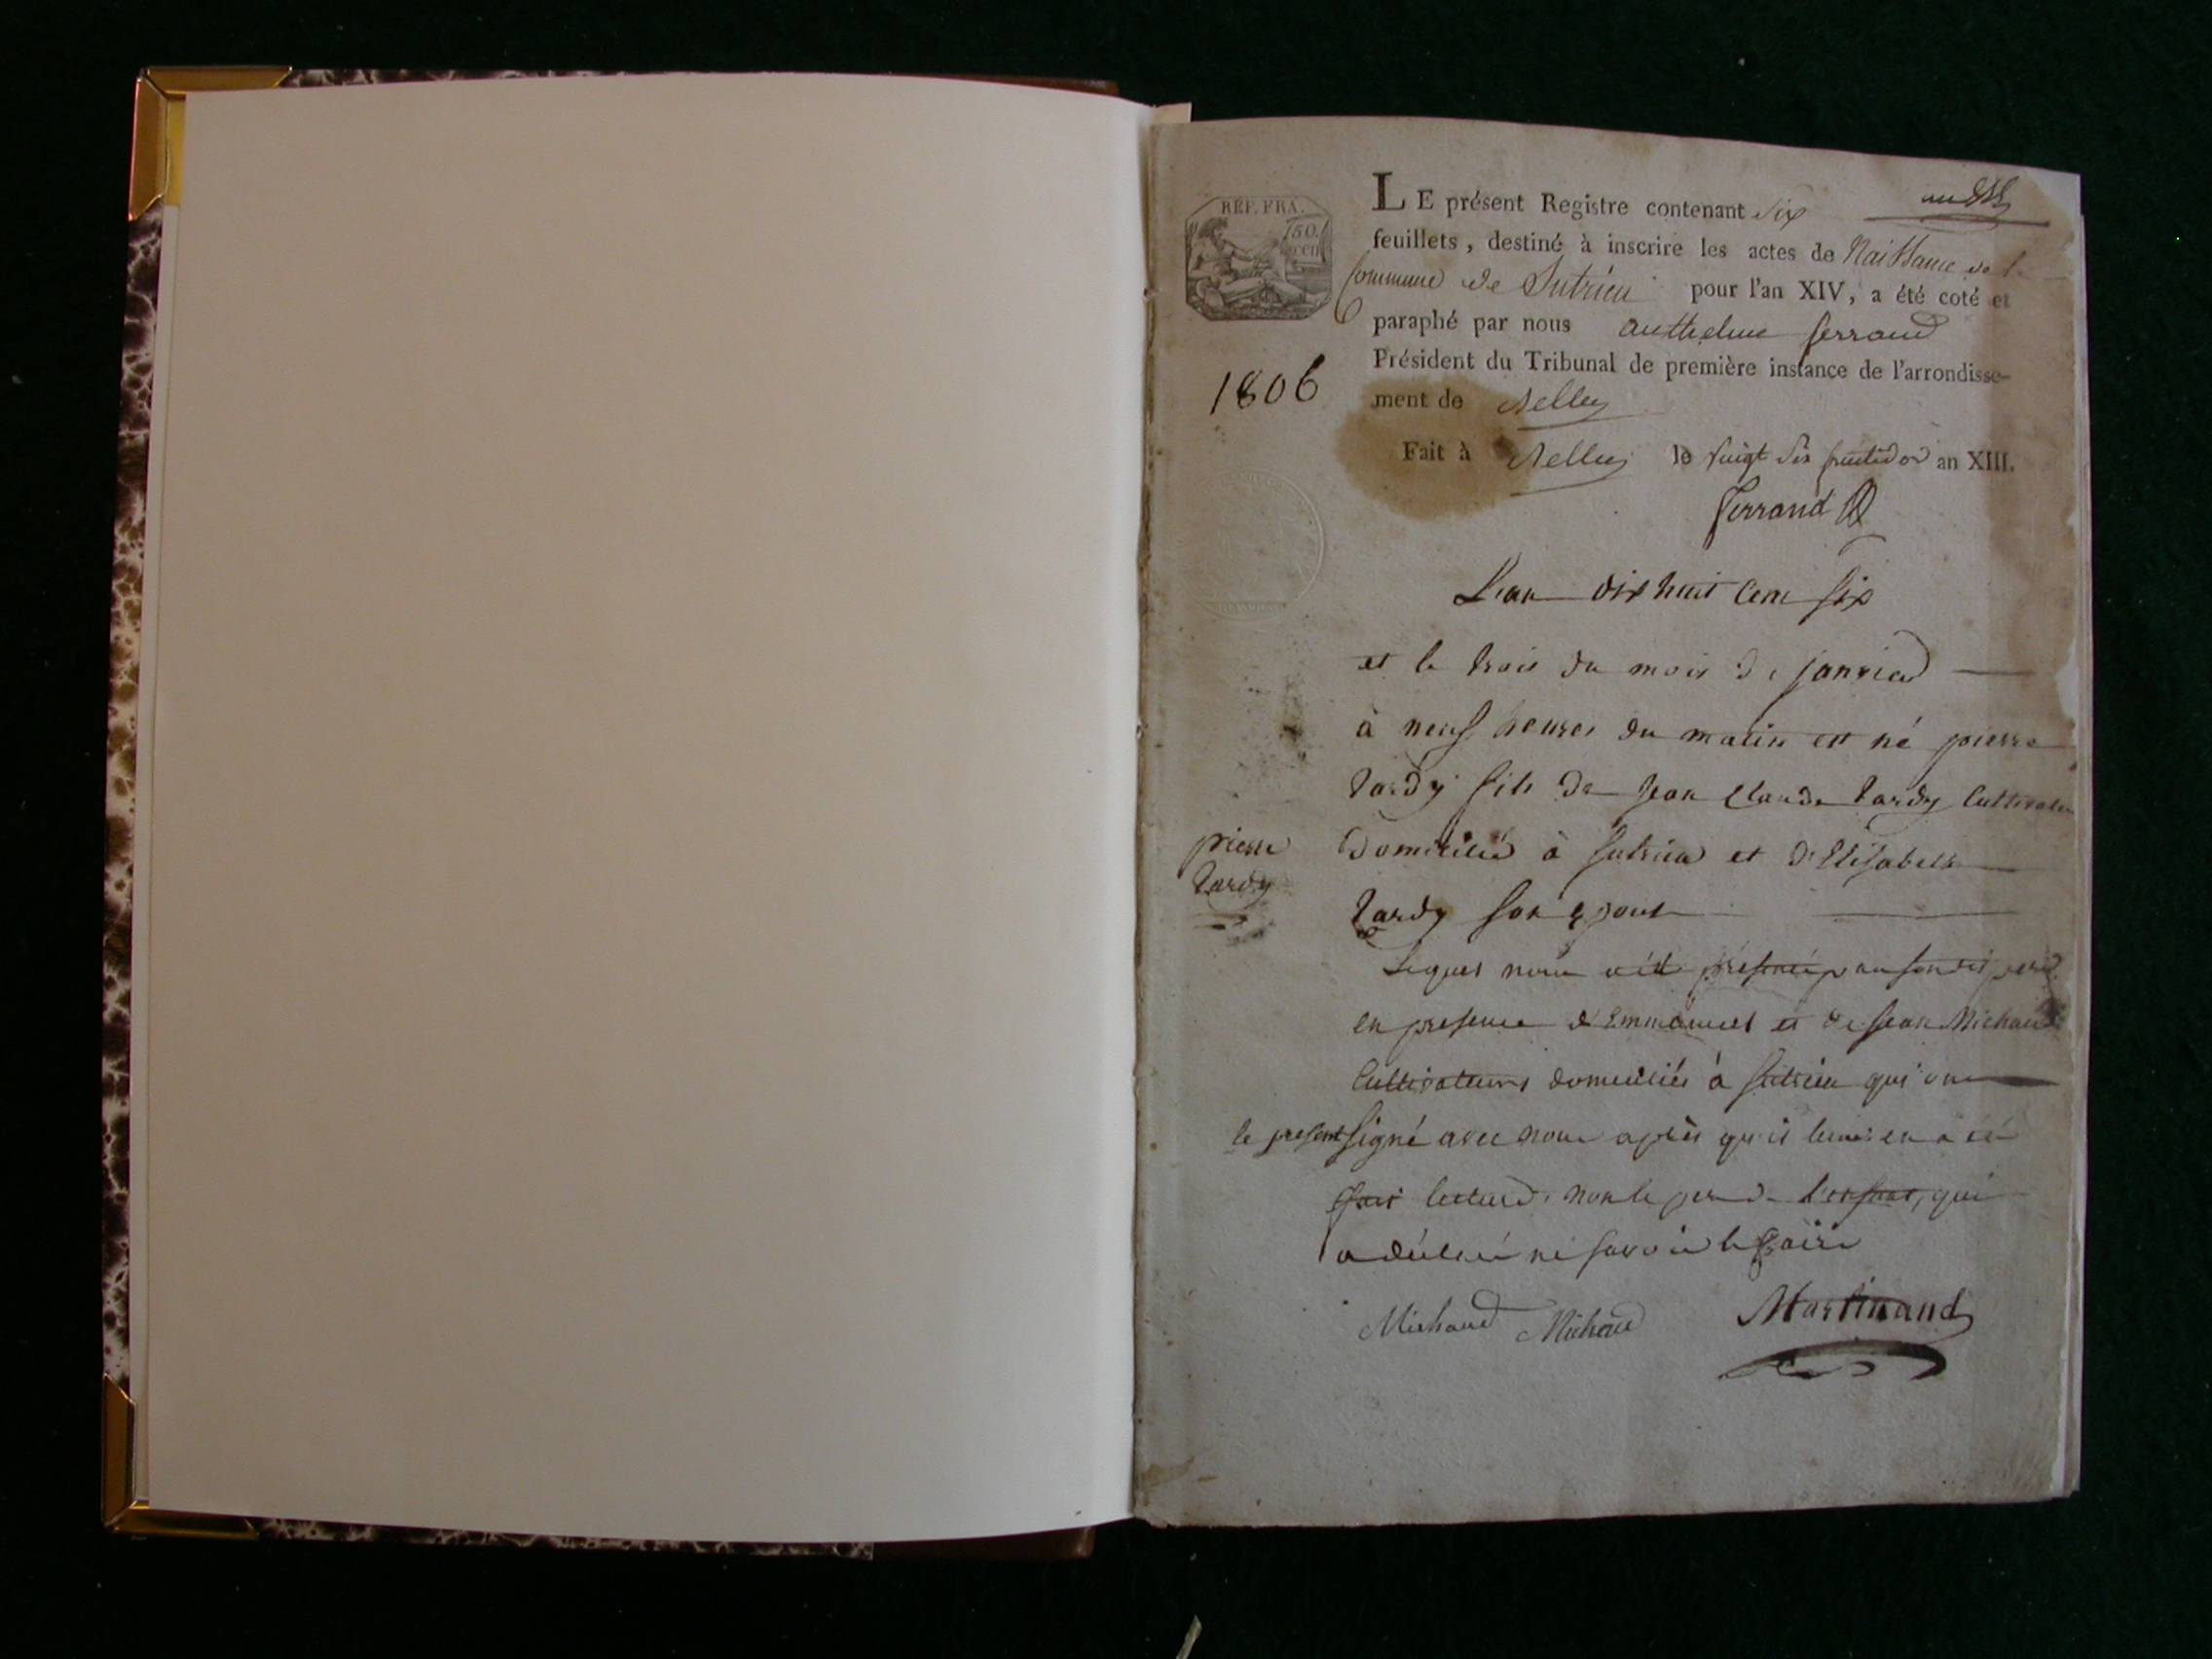 RÉP. FRA.
50
cen
LE présent Registre contenant six
feuillets, destiné à inscrire les actes de Naissance de
Commune de Sutrieu pour l'an XIV, a été coté et
paraphé par nous anthelme ferrand
Président du Tribunal de première instance de l'arrondisse-
ment de Belley
1806
Fait à Belley le vingt six fructidor an XIII.
Ferrand
L'an dix huit cent six
et le trois du mois de janvier
à neuf heures du matin est né pierre
tardy fils de jean Claude tardy Cultivateur
pierre
tardy
domicilié à Sutrieu et d'Elisabeth
tardy son epouse
Lequel nous a été présenté par son dit pere
en presence d'Emmanuel et de jean Michaud
Cultivateurs domiciliés à Sutrieu qui ont
le present signé avec nous après qu'il leur en a été
fait lecture, non le pere de l'enfant, qui
a déclaré ne savoir le faire
Michaud Michaud Martinand